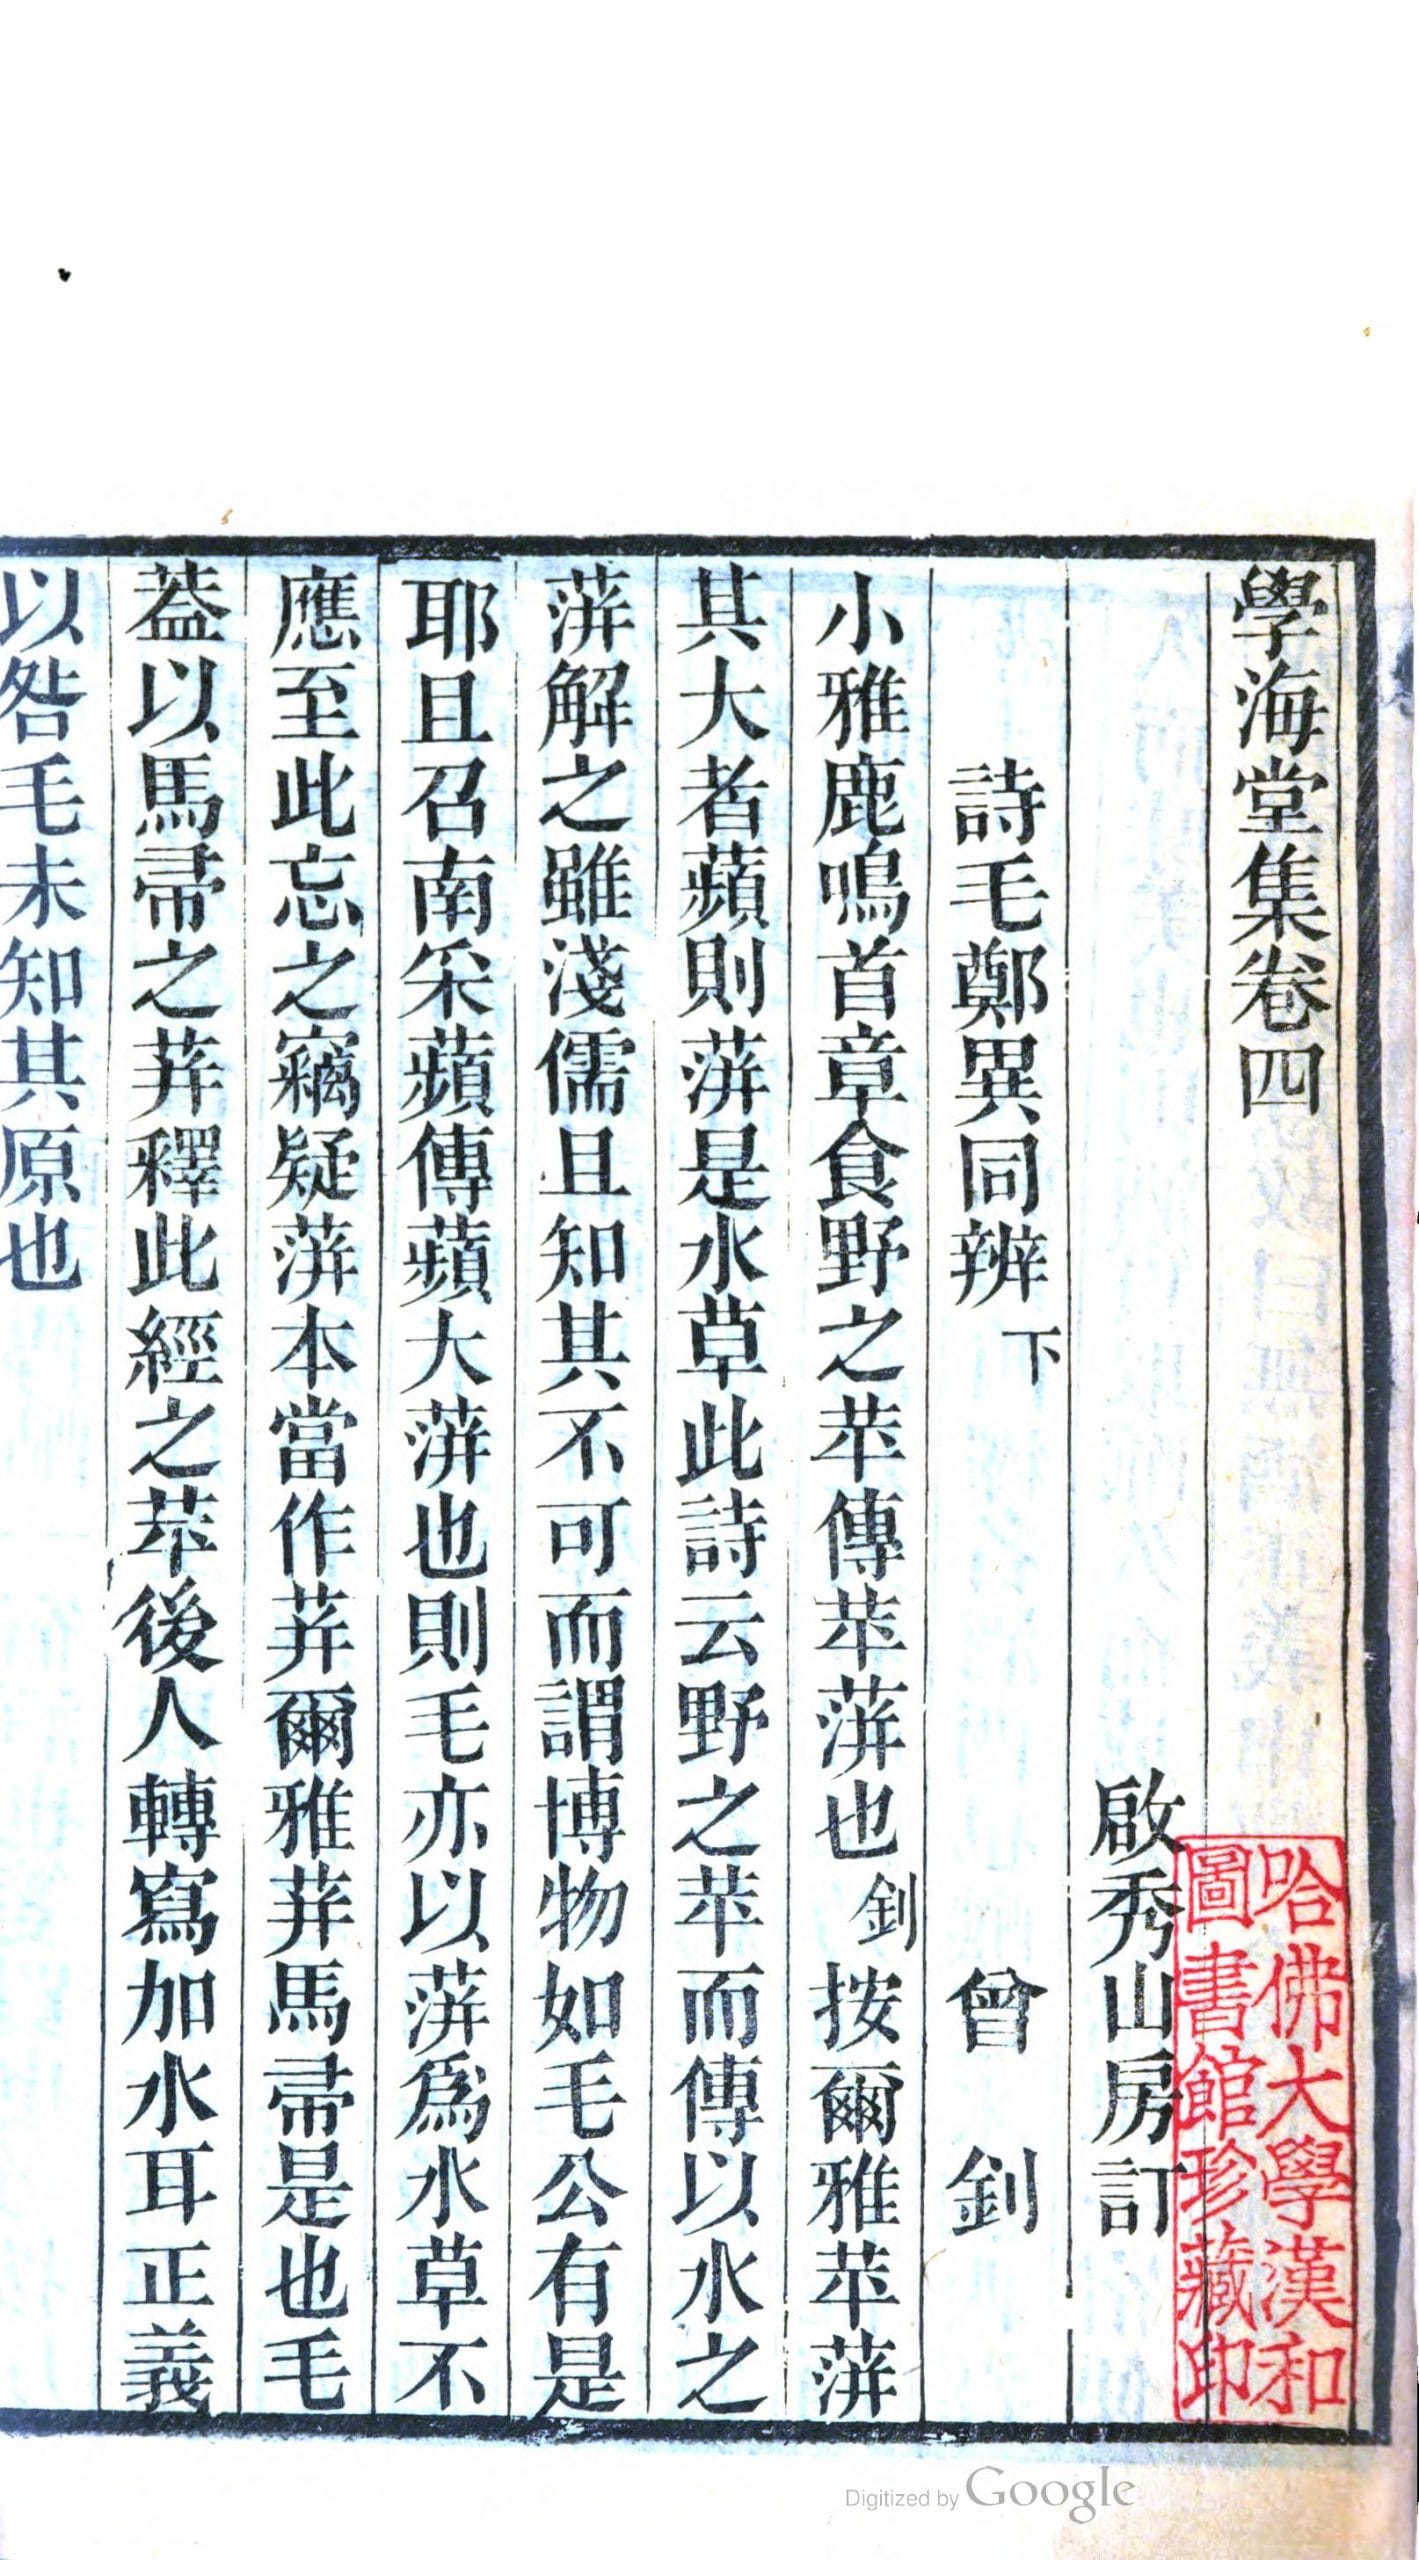 學海堂集卷四
啟秀山房訂
詩毛鄭異同辨下 曾 釗
小雅鹿鳴首章食野之苹傳苹蓱也釗按爾雅苹蓱
其大者蘋則蓱是水草此詩云野之苹而傳以水之
蓱解之雖淺儒且知其不可而謂博物如毛公有是
耶且召南采蘋傳蘋大蓱也則毛亦以蓱爲水草不
應至此忘之竊疑蓱本當作荓爾雅荓馬帚是也毛
葢以馬帚之荓釋此經之苹後人轉寫加水耳正義
以咎毛未知其原也
哈佛大學漢和
圖書館珍藏印
Digitized by Google